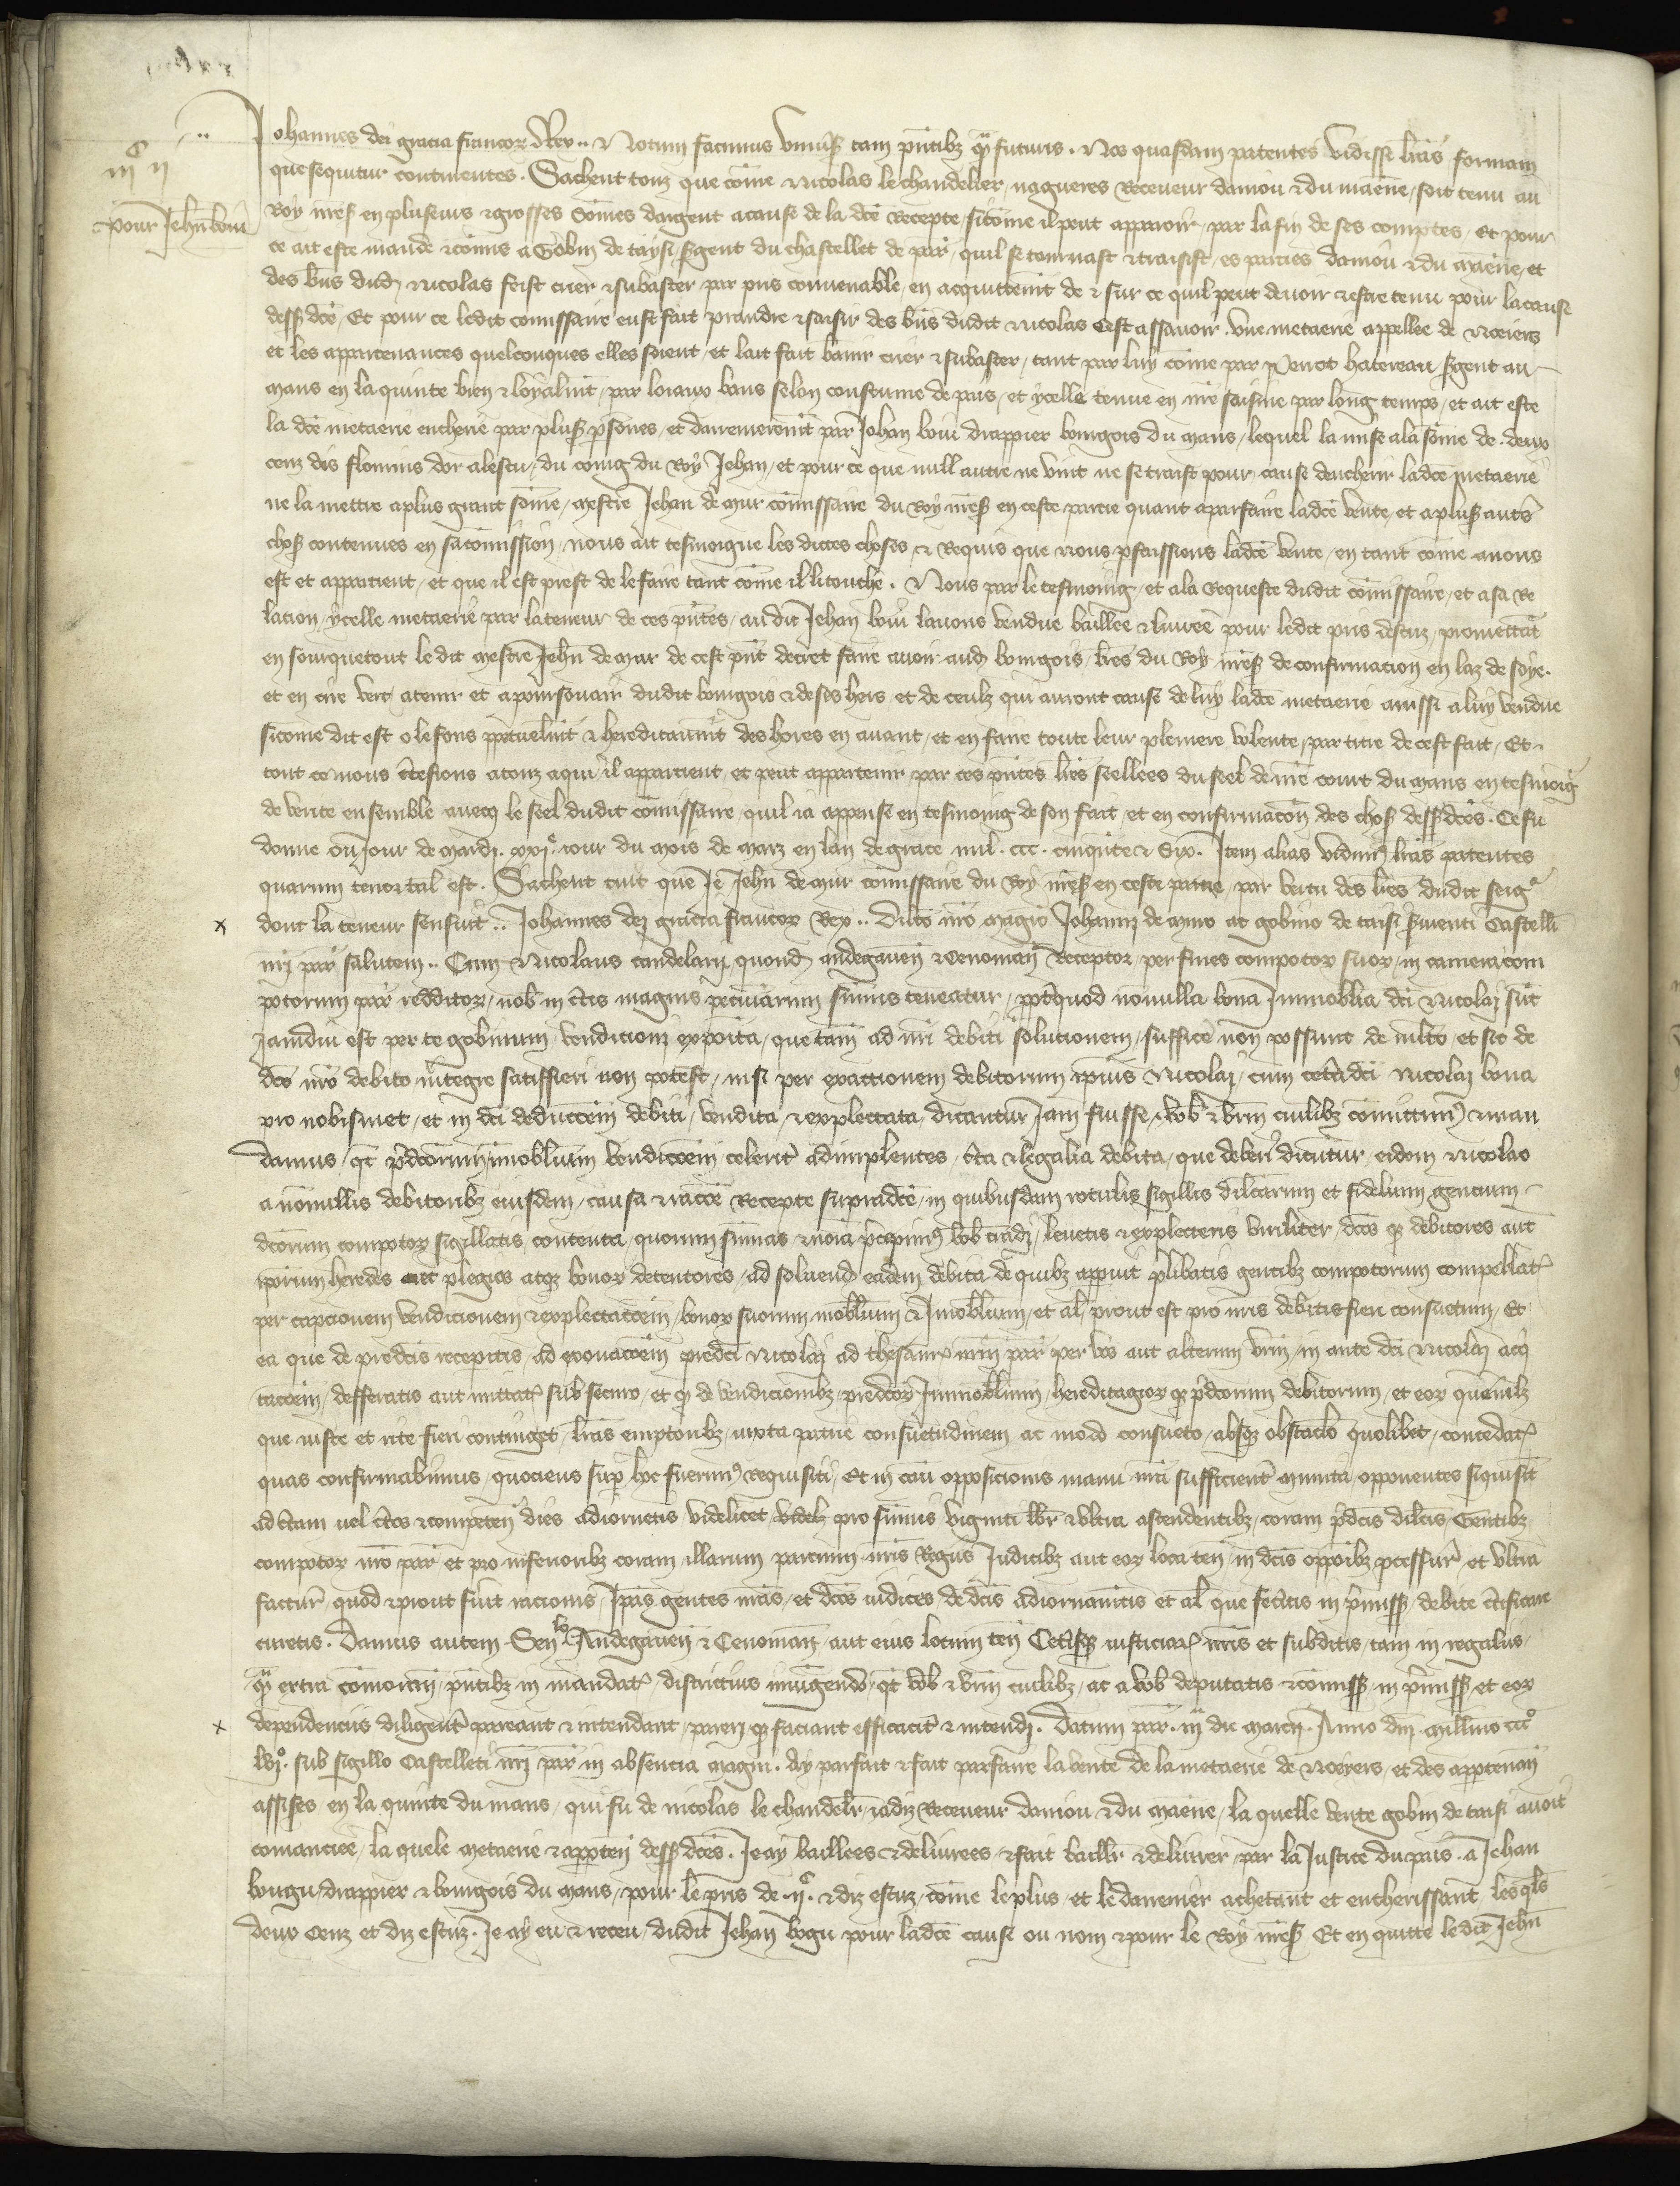 iijc ij
pour Jehn boui
Johannes dei gracia francor Rex .. Notum facimus univs tam pntibz qm futuris . Nos quasdam patentes vidisse lras formam
que sequitur continentes . Sachent touz que come Nicolas le chandelier nagueres Receveur danjou & du maenne soit tenu au
Roy nres en pluseurs & grosses sommes dargent a cause de la dce Recepte sicome il peut apparoir par la fin de ses comptes Et pour
ce ait este mande & comis a Gobin de taysi sergent du chastellet de par quil se tournast & traisist es parties danjou & du maene et
des bns dud Nicolas feist crier & subaster par pris convenable en acquittemt de & sur ce quil peut devoir & estre tenu pour la cause
dess dce Et pour ce ledit comissaire eust fait prandre & saisir des bns dudit Nicolas Cest assavoir une metaerie appellee de Noeiers
et les appartenances quelconques elles soient et lait fait banir crier & subaster tant par luy come par Perrot hatereau sgent au
mans en la quinte bien & loyalmt par loiaux bans selon coustume de pais et ycelle tenue en nre saisine par long temps et ait este
la dce metaerie encherie par plus psones et darrenierement par Johan boui drappier bourgois du mans lequel la mise a la some de deux
cenz dis florins dor a lescu du coing du Roy Jehan et pour ce que null autre ne vint ne se traist pour cause dencherir ladce metaerie
ne la mettre a plus grant some mestre Jehan de mur comissaire du Roy nres en ceste partie quant a parfaire ladce vente et a plus autrs
chos contenues en sa comission nous ait tesmoigne les dictes choses & Requis que nous pfeissions ladce vente en tant come a nous
est et appartient et que il est prest de le faire tant come il li touche . Nous par le tesmoing et a la Requeste dudit comissaire et a sa Re
lacion ycelle metaerie par la teneur de ces pntes audit Jehan boui lavons vendue baillee & livree pour ledit pris descuz promettat
en sourquetout le dit mestre Jehn de mur de cest pnt decret faire avoir aud bourgois lres du Roy nres de confirmacion en laz de soye
et en cire vert a tenir et a poursouair dudit bourgois & de ses hers et de ceulz qui auront cause de luy ladce metaerie aussi a luy vendue
sicome dit est o le fons ppetuelmt & hereditaumt des hores en avant et en faire toute leur pleniere volente par titre de cest fait Et
tout ce nous ctefions a touz a qui il appartient et peut appartenir par ces pntes lres seellees du seel de nre court du mans en tesmoig
de vente ensemble avecq le seel dudit comissaire quil ia appense en tesmoing de son fait et en confirmacon des chos dess dces . Ce fu
donne ou jour de mardi xxje jour du mois de marz en lan de grace mil ccc cinqute & six . Item alias vidims lras patentes
quarum tenor tal est . Sachent tuit que Je Jehn de mur comissaire du Roy nres en ceste partie par vertu des lres dudit seigr
dont la teneur sensuit .. Johannes dei gracia francor Rex .. Dilco nro magro Johanni de muro ac gobino de taisi svienti Castelli
nri par salutem .. Cum Nicolaus candelarii quond andegaven & Cenoman Receptor per fines compotor suor in camera com
potorum par redditor nob in ctis magnis pecuniarum sumis teneatur ppt quod nonulla bona Immoblia dci Nicolai sut
Jamdiu est per te gobinum vendicioni exposita que tam ad nri debiti solucionem sufficere non possunt de multo et sic de
dco nro debito integre satisfieri non potest nisi per exactionem debitorum ipsius Nicolai cum cetera dci Nicolai bona
pro nobismet et in dci deduccem debiti vendita & explectata dicantur Jam fuisse vob & vrm cuilibz comittims & man
damus qt pdcorum immoblium vendiccoem celerit adimplentes cta & legalia debita que deberi dicutur eidem Nicolao
a nonullis debitoribz eiusdem causa & racoe Recepte supradce in quibusdam rotulis sigillis dilcorum et fidelium gencium
dcorum compotor sigillatis contenta quorum sumas & noia pcepims vob tradi levetis & explectetis viriliter dcos qz debitores aut
ipsorum heredes aut plegios atqz bonor detentores ad solvend eadem debita de quibz appuit plibatis gentibz compotorum compellatis
per capcionem vendicionem & explectaccem bonor suorum moblium & Jmoblium et al prout est pro nris debitis fieri consuetum Et
ea que de predcis receperitis ad exonaccem predci Nicolai ad thesaurum nrm par per vos aut alterum vrm in aute dci Nicolai acqi
taccem defferatis aut mittatis sub securo et qz de vendicionibz predcor Immoblium hereditagior qz pdcorum debitorum et eor quemlibz
que iuste et rite fieri continget lras emptoribz iuxta patrie consuetudinem ac modo consueto absqz obstaclo quolibet concedatis
quas confirmabimus quociens sup hoc fuerims Requisiti Et in cau opposicionis manu nra sufficient munita opponentes siqui sit
ad ctam vel ctos & competen dies adiornetis videlicet pro sumis viginti libr & ultra ascendentibz coram pdcis dilcis Gentibz
compotor nro par et pro inferioribz coram illarum parcium nris Regiis Judicibz aut eor loca ten in dcis oppoibz pcessur et ultra
factur quod & prout fuerit racionis Ipas gentes nras et dcos iudices de dcis adiornamtis et al que feceritis in pmiss debite ctificare
curetis . Damus autem Senllo Andegaven & Cenoman aut eius locum ten Ceterisqz iusticiar nris et subditis tam in regalus
qm extra comoran pntibz in mandatis districtius iniungendo qt vob & vrm cuilibz ac a vob deputatis & comiss in pmiss et eor
dependenciis diligent pareant & intendant pareri qz faciant efficacit & intendi . Datum par iija die marcii Anno dni millmo ccco
lvjo sub sigillo Castelleti nri par in absencia magni . Ay parfait & fait parfaire la vente de la metaerie de Noeyers et des appartenan
assises en la quinte du mans qui fu de nicolas le chandelr jadiz Receveur danjou & du maene la quelle vente gobin de taisi avoit
comanciee la quele metaerie & apparten dess dces . Je ay baillees & delivrees & fait baillr & delivrer par la Justice du pais a Jehan
bougu drappier & bourgois du mans pour le pris de ijc & diz escuz come le plus et le darrenier achetant et encherissant les qls
deux cenz et diz escuz . Je ay eu & receu dudit Jehan bogu pour ladce cause ou nom & pour le Roy nres Et en quitte ledit Jehn